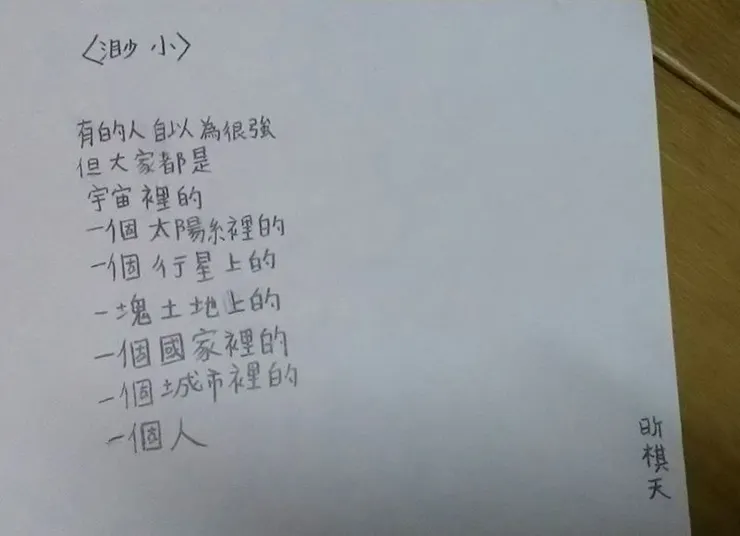 〈渺小〉
有的人自以為很強
但大家都是
宇宙裡的
一個太陽系裡的
一個行星上的
一塊土地上的
一個國家裡的
一個城市裡的
一個人
昕棋天